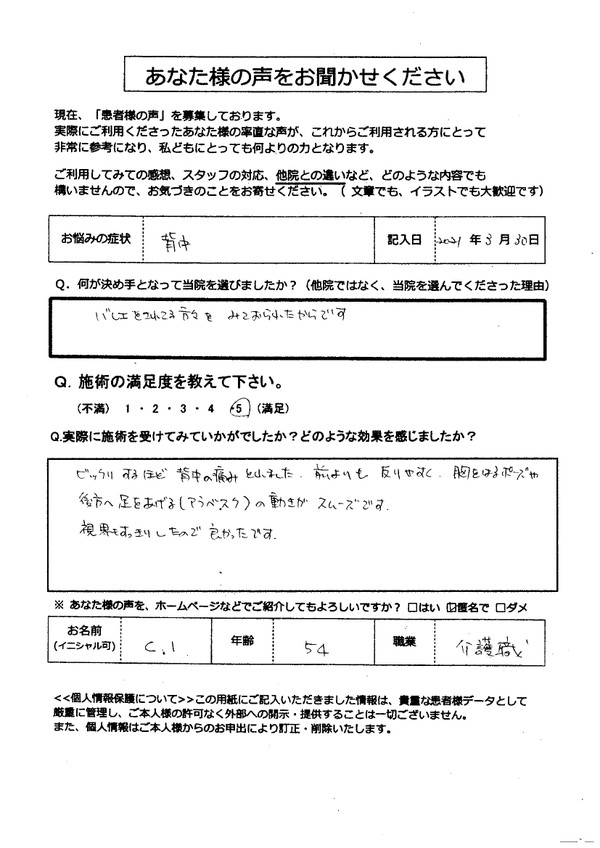 あなた様の声をお聞かせください
現在、「患者様の声」を募集しております。
実際にご利用くださったあなた様の率直な声が、これからご利用される方にとって
非常に参考になり、私どもにとっても何よりの力となります。
ご利用してみての感想、スタッフの対応、他院との違いなど、どのような内容でも
構いませんので、お気づきのことをお寄せください。(文章でも、イラストでも大歓迎です)
お悩みの症状 背中 記入日 2021年3月30日
Q. 何が決め手となって当院を選びましたか?(他院ではなく、当院を選んでくださった理由)
バレエをされてる方々を みておられたからです
Q. 施術の満足度を教えて下さい。
(不満) 1・2・3・4・5 (満足)
Q.実際に施術を受けてみていかがでしたか?どのような効果を感じましたか?
ビックリするほど 背中の痛みとれました. 前よりも 反りやすく. 胸をはるポーズや
後方へ足をあげる(アラベスク)の動きが スムーズです.
視界もすっきりしたので 良かったです.
※ あなた様の声を、ホームページなどでご紹介してもよろしいですか? □はい ☑匿名で □ダメ
お名前 (イニシャル可) C.I 年齢 54 職業 介護職
<<個人情報保護について>>この用紙にご記入いただきました情報は、貴重な患者様データとして
厳重に管理し、ご本人様の許可なく外部への開示・提供することは一切ございません。
また、個人情報はご本人様からのお申出により訂正・削除いたします。